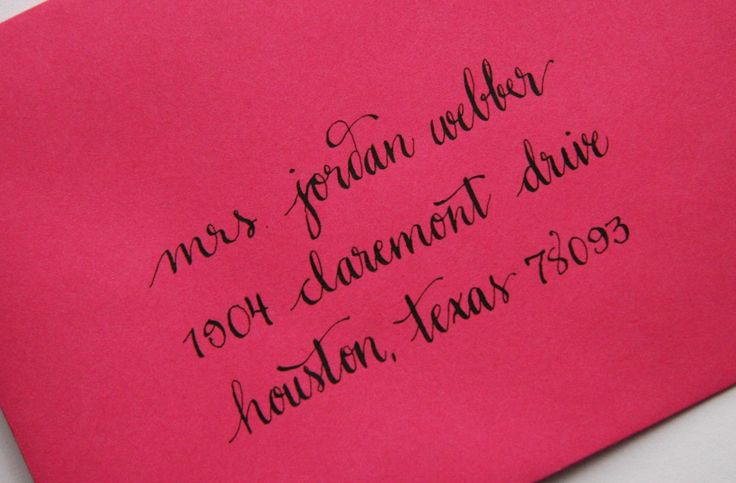 mrs. jordan webber
1904 claremont drive
houston, texas 78093